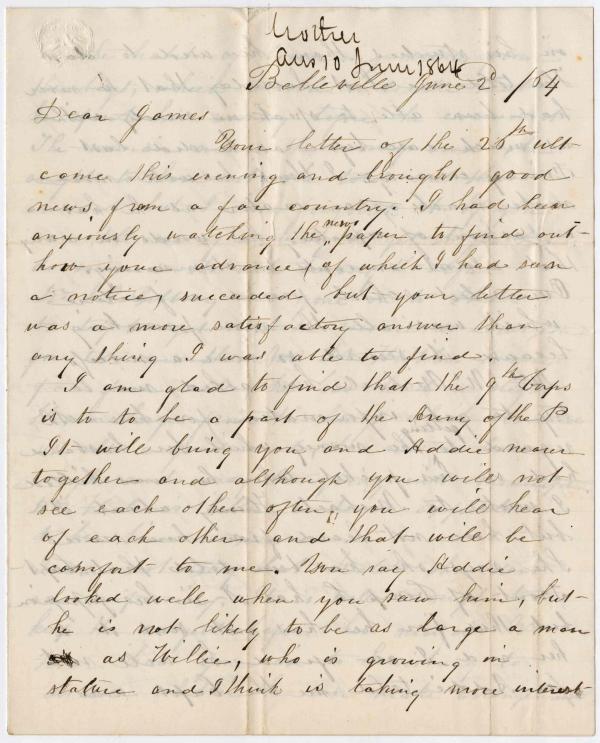 Mother
Ans 10 June 1864
Belleville June 2d /64
Dear James
Your letter of the 26th ult
came this evening and brought good
news from a far country. I had been
anxiously watching the news paper to find out
how your advance, of which I had seen
a notice, succeeded but your letter
was a more satisfactory answer than
any thing I was able to find.
I am glad to find that the 9th Corps
is to to be a part of the Army of the P
It will bring you and Addie nearer
together and although you will not
see each other often, you will hear
of each other and that will be
comfort to me. You say Addie
looked well when you saw him, but
he is not likely to be as large a man
as Willie, who is growing in
stature and I think is taking more interest